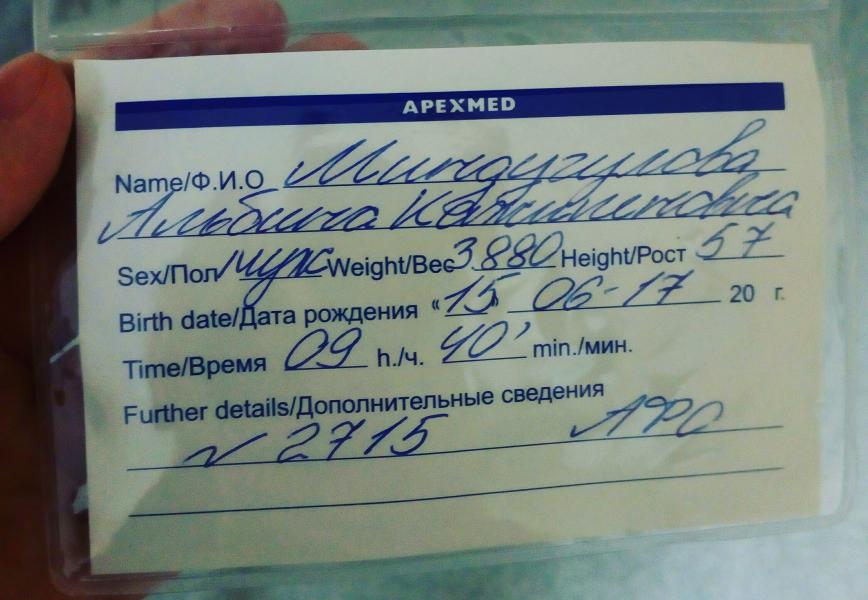 APEXMED
Name/Ф.И.О Миндугулова
Альбина
Sex/Пол муж Weight/Вес 3880 Height/Рост 57
Birth date/Дата рождения «15» 06-17 20 г.
Time/Время 09 h./ч. 40' min./мин.
Further details/Дополнительные сведения
N 2715 АФО